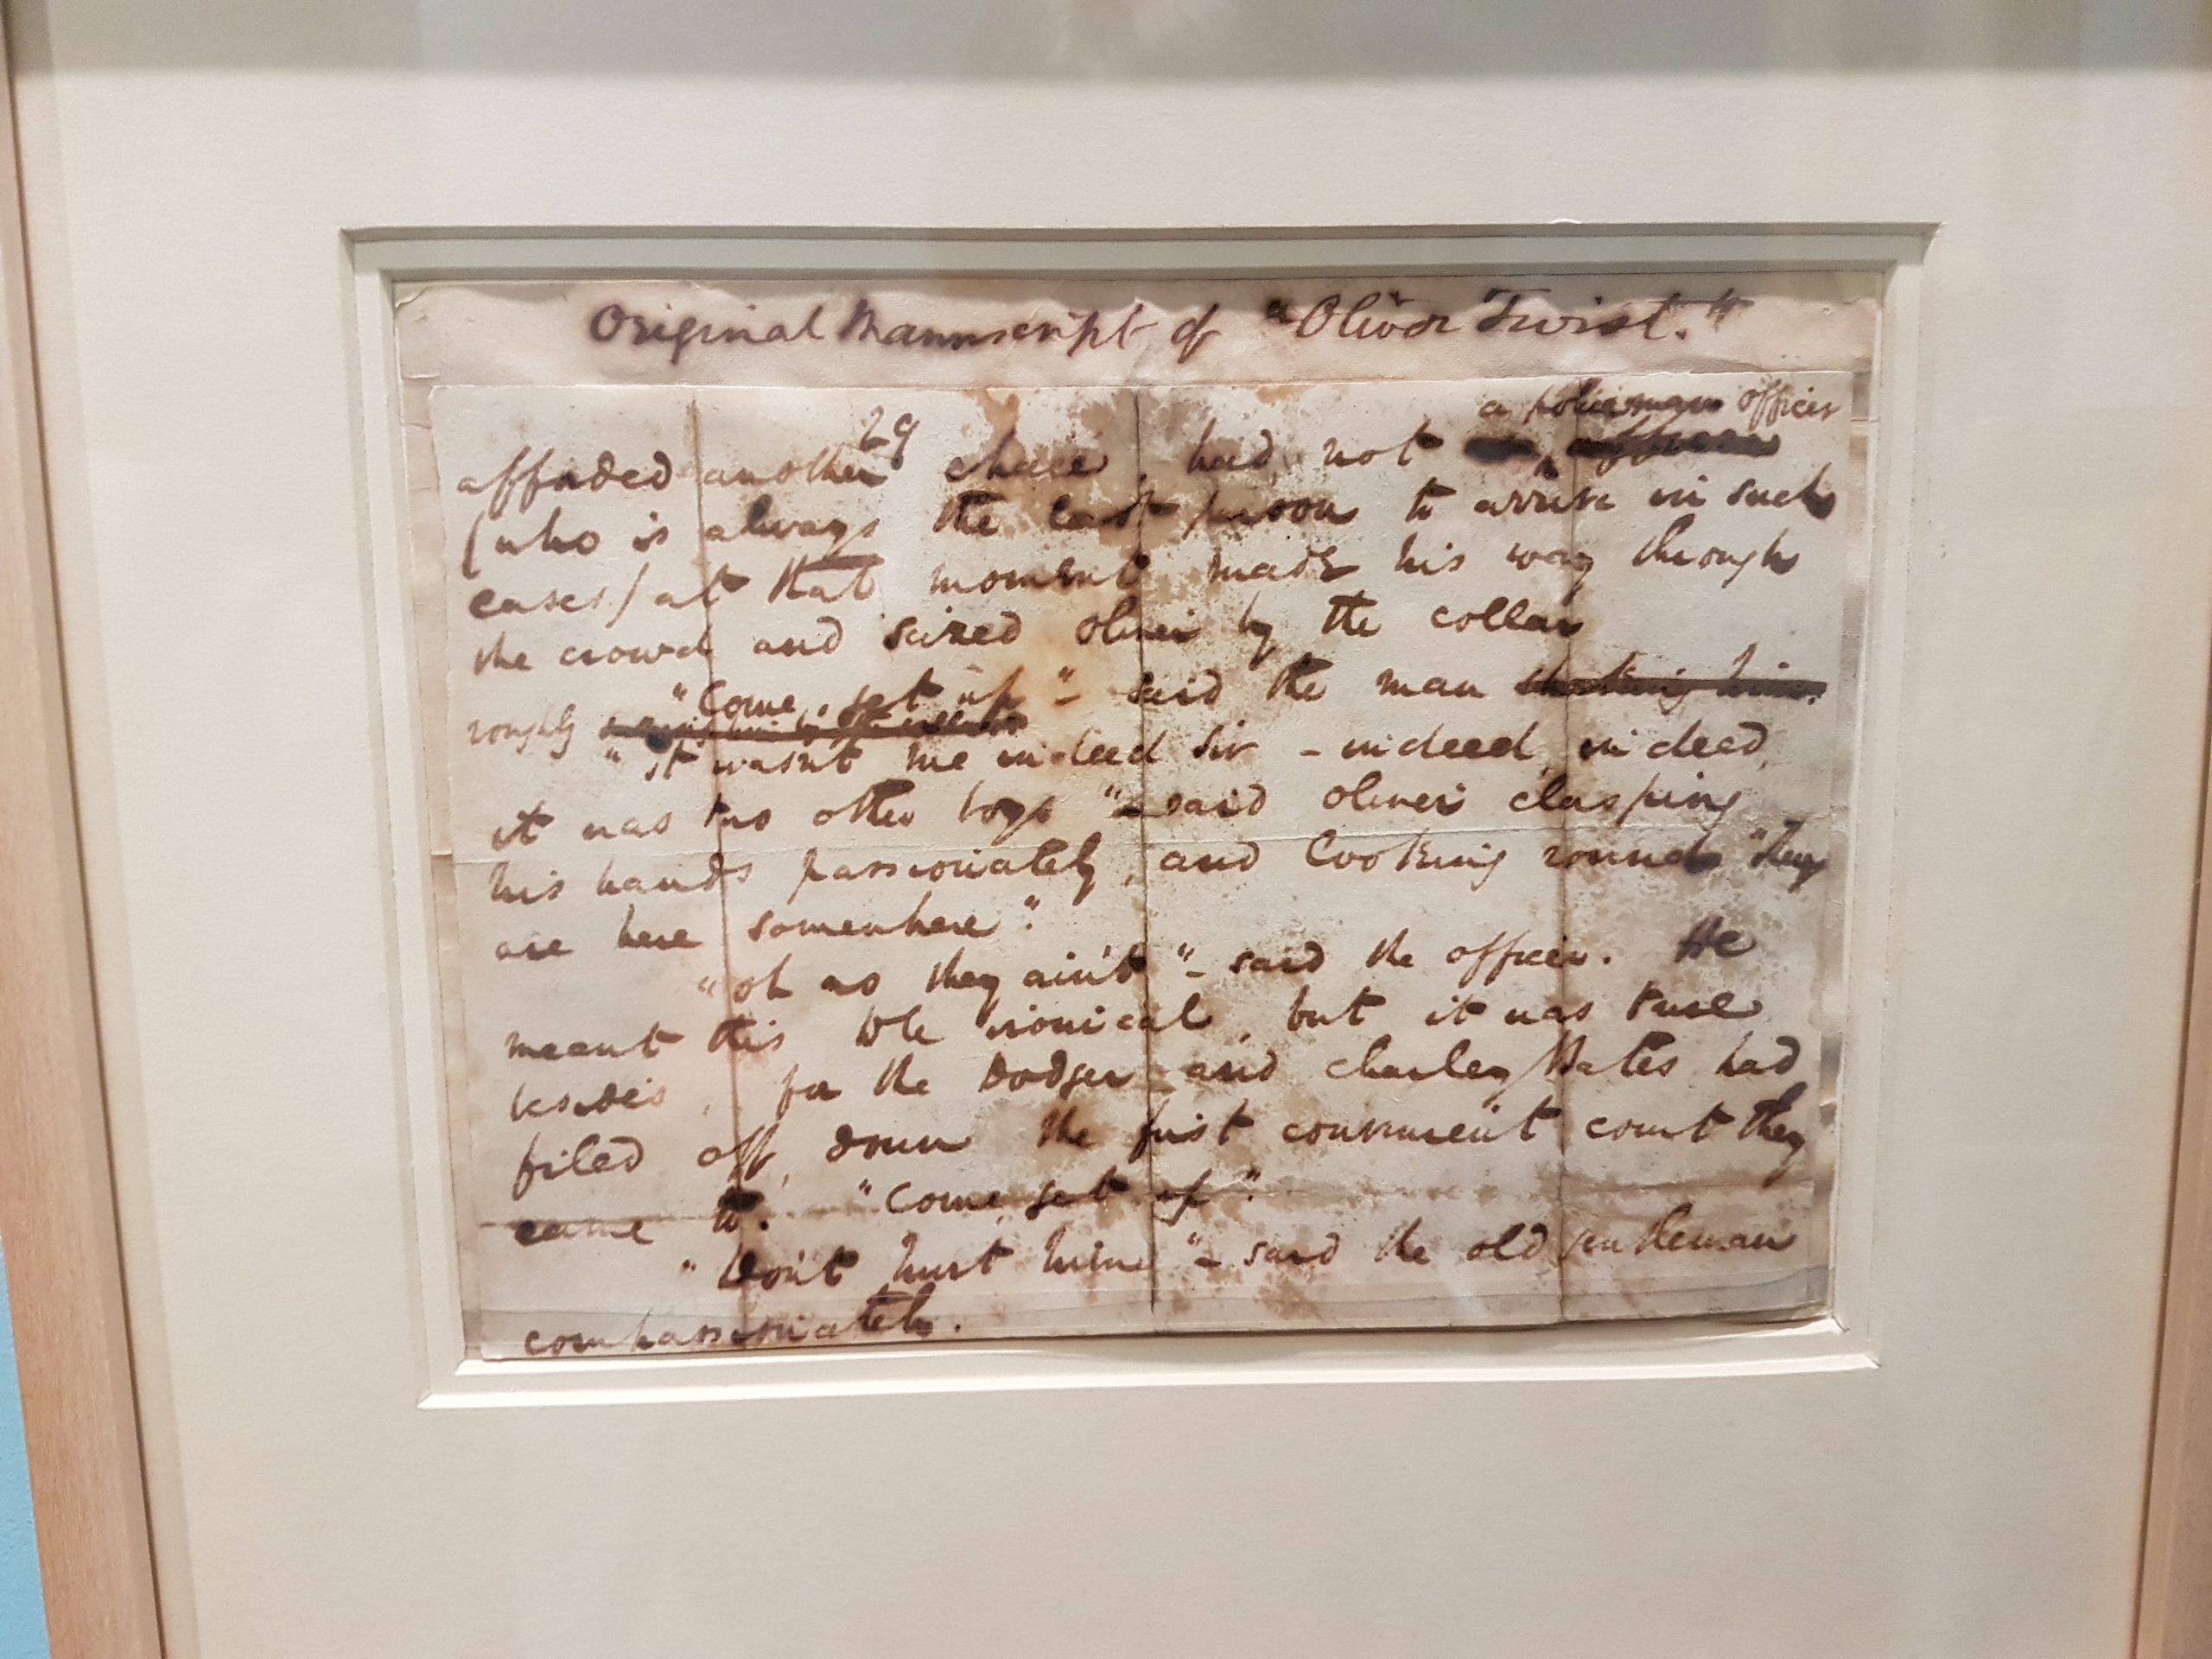 Original Manuscript of "Oliver Twist."
29
a policeman officer
afforded another chace, had not
(who is always the last person to arrive in such
cases) at that moment made his way through
the crowd and seized Oliver by the collar
"Come, get up" - said the man
roughly
"It wasn't me indeed sir - indeed, indeed,
it was two other boys" - said Oliver clasping
his hands passionately, and looking round "They
are here somewhere".
"Oh no they ain't" - said the officer. He
meant this to be ironical, but it was true
besides, for the Dodger and Charley Bates had
filed off, down the first convenient court they
came to. "Come get up".
"Don't hurt him" - said the old gentleman
compassionately.